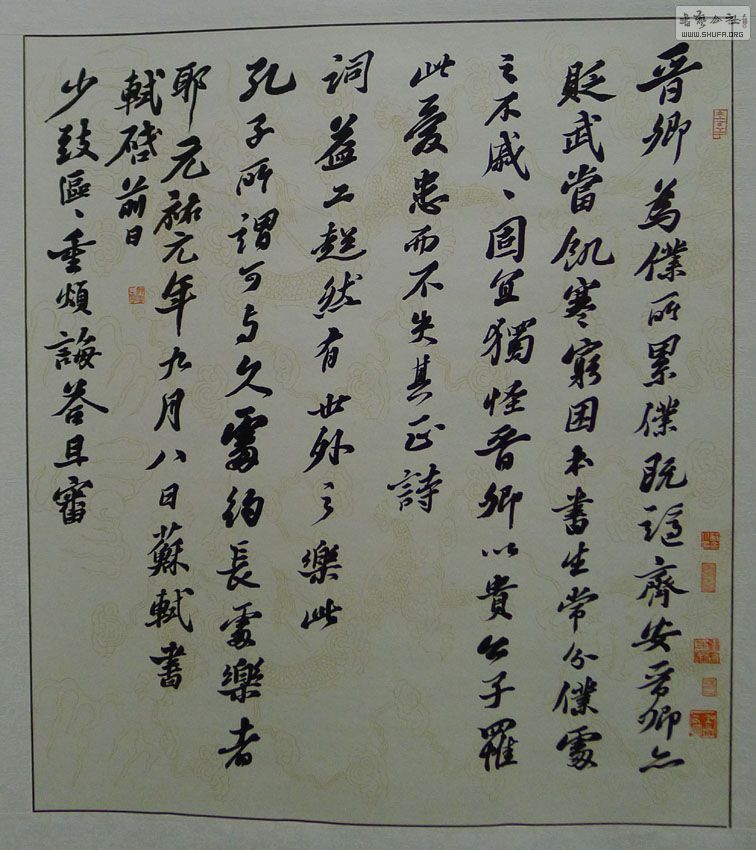 晋卿為僕所累僕既謫齊安晋卿亦
貶武當飢寒窮困本書生常分僕處
之不戚〻固宜獨怪晋卿以貴公子罹
此憂患而不失其正詩
詞益工超然有世外之樂此
孔子所謂可与久處約長處樂者
耶元祐元年九月八日蘇軾書
軾啓前日
少致區〻重煩誨答且審
書藝公社
WWW.SHUFA.ORG